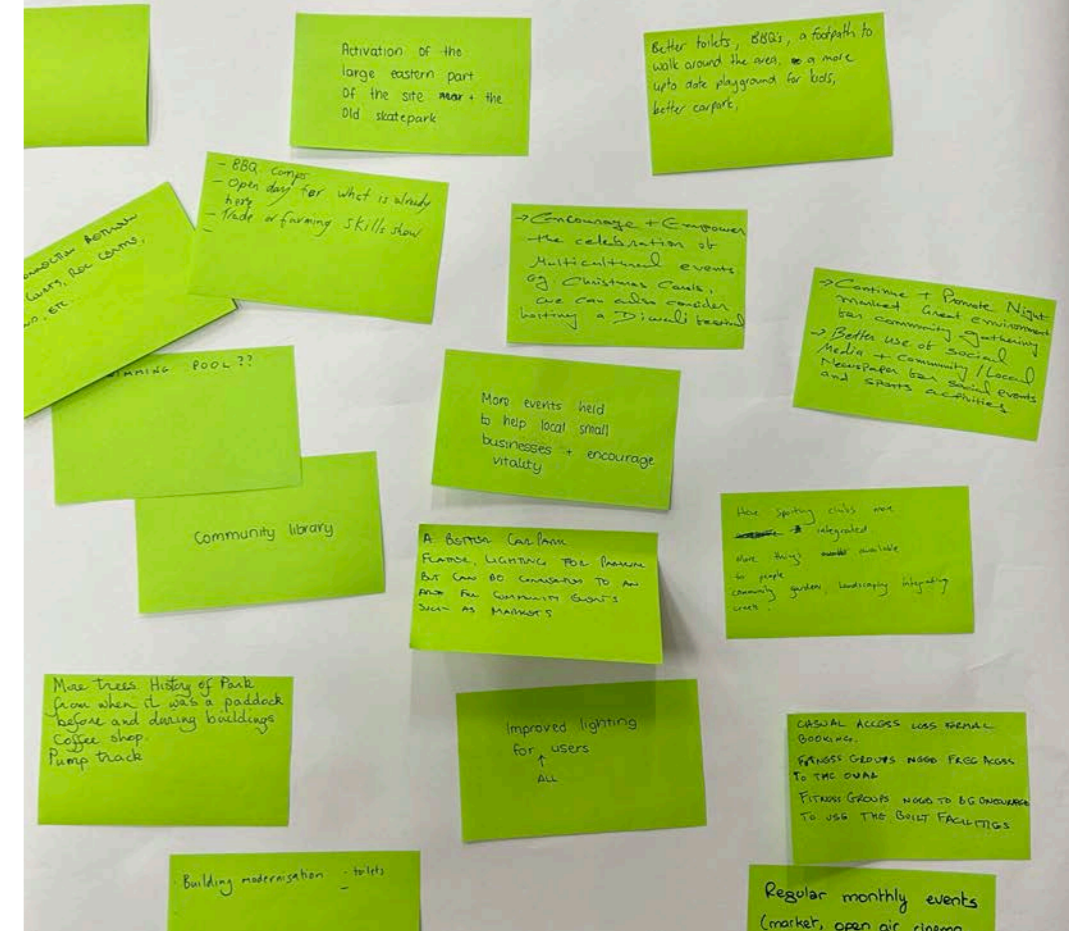 Activation of the
large eastern part
Of the site + the
Old skatepark
Better toilets, BBQ's, a footpath to
walk around the area, a more
upto date playground for kids,
better carpark.
- BBQ comps
- Open day for what is already
here
- Trade or farming skills show
-
→ Encourage + Empower
the celebration of
Multicultural events
eg Christmas Carols,
we can also consider
hosting a Diwali festival
→ Continue + Promote Night
market. Great environment
for community gathering
→ Better use of social
Media + Community / Local
Newspaper for social events
and sports activities
ETC.
POOL??
More events held
to help local small
businesses + encourage
vitality
Community library
A BETTER CAR PARK
FLATTER, LIGHTING FOR PARKING
BUT CAN BE CONVERTED TO AN
AREA FOR COMMUNITY EVENTS
SUCH AS MARKETS
Have sporting clubs more
integrated
More things available
to people
community garden, landscaping integrating
creek.
More trees History of Park
from when it was a paddock
before and during buildings
Coffee shop.
Pump track
Improved lighting
for users
↑
ALL
CASUAL ACCESS LESS FORMAL
BOOKING.
FITNESS GROUPS NEED FREE ACCESS
TO THE OVAL
FITNESS GROUPS NEED TO BE ENCOURAGED
TO USE THE BUILT FACILITIES
· Building modernisation - toilets
-
Regular monthly events
(market, open air cinema